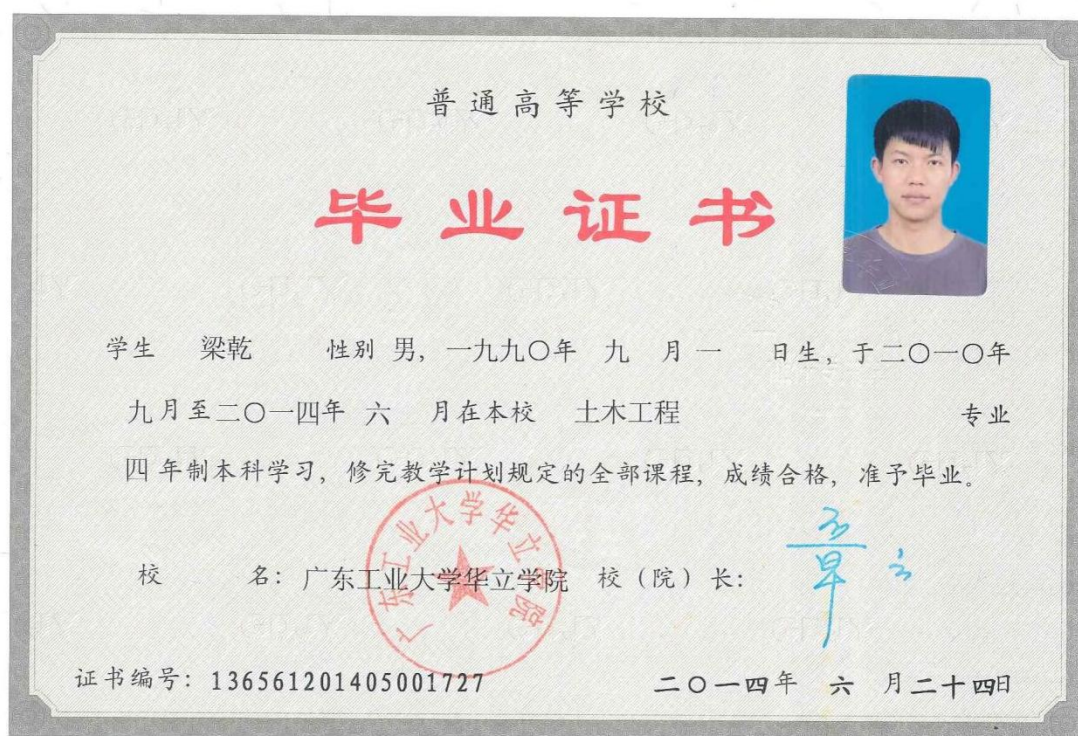 普通高等学校
毕业证书
学生 梁乾 性别 男，一九九〇年 九 月 一 日生，于二〇一〇年
九月至二〇一四年 六 月在本校 土木工程 专业
四 年制本科学习，修完教学计划规定的全部课程，成绩合格，准予毕业。
广东工业大学华立学院
校 名：广东工业大学华立学院 校（院）长：
证书编号：136561201405001727 二〇一四年 六 月二十四日